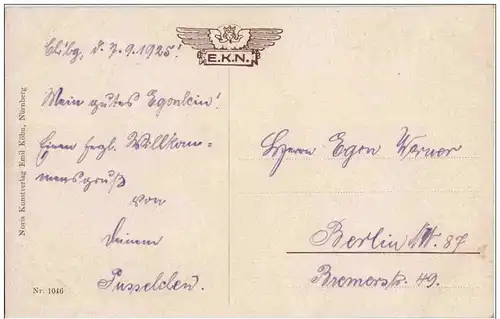 d. 7.9.1925!
Mein gutes Egonlein!
Einen herzl. Willkom=
mensgruß
von
Deinem
Pusselchen.
E.K.N.
Herrn Egon Werner
Berlin N.W. 87
Bremerstr. 49.
Noris Kunstverlag Emil Köhn, Nürnberg
Nr. 1046